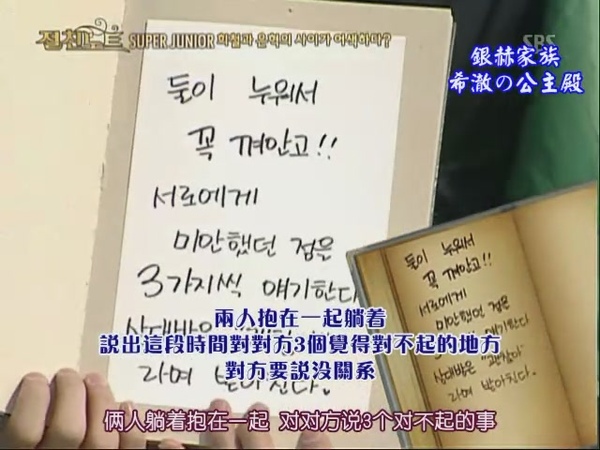 절친노트 SUPER JUNIOR 희철과 은혁의 사이가 어색하다?
SBS
銀赫家族
希澈の公主殿
둘이 누워서
꼭 껴안고!!
서로에게
미안했던 점은
3가지씩 얘기한다
상대방은
라며 받아친다.
둘이 누워서
꼭 껴안고!!
서로에게
미안했던 점은
3가지씩 얘기한다
상대방은 "괜찮아"
라며 받아친다.
兩人抱在一起躺着
説出這段時間對對方3個覺得對不起的地方
對方要説没關系
俩人躺着抱在一起 对对方说3个对不起的事